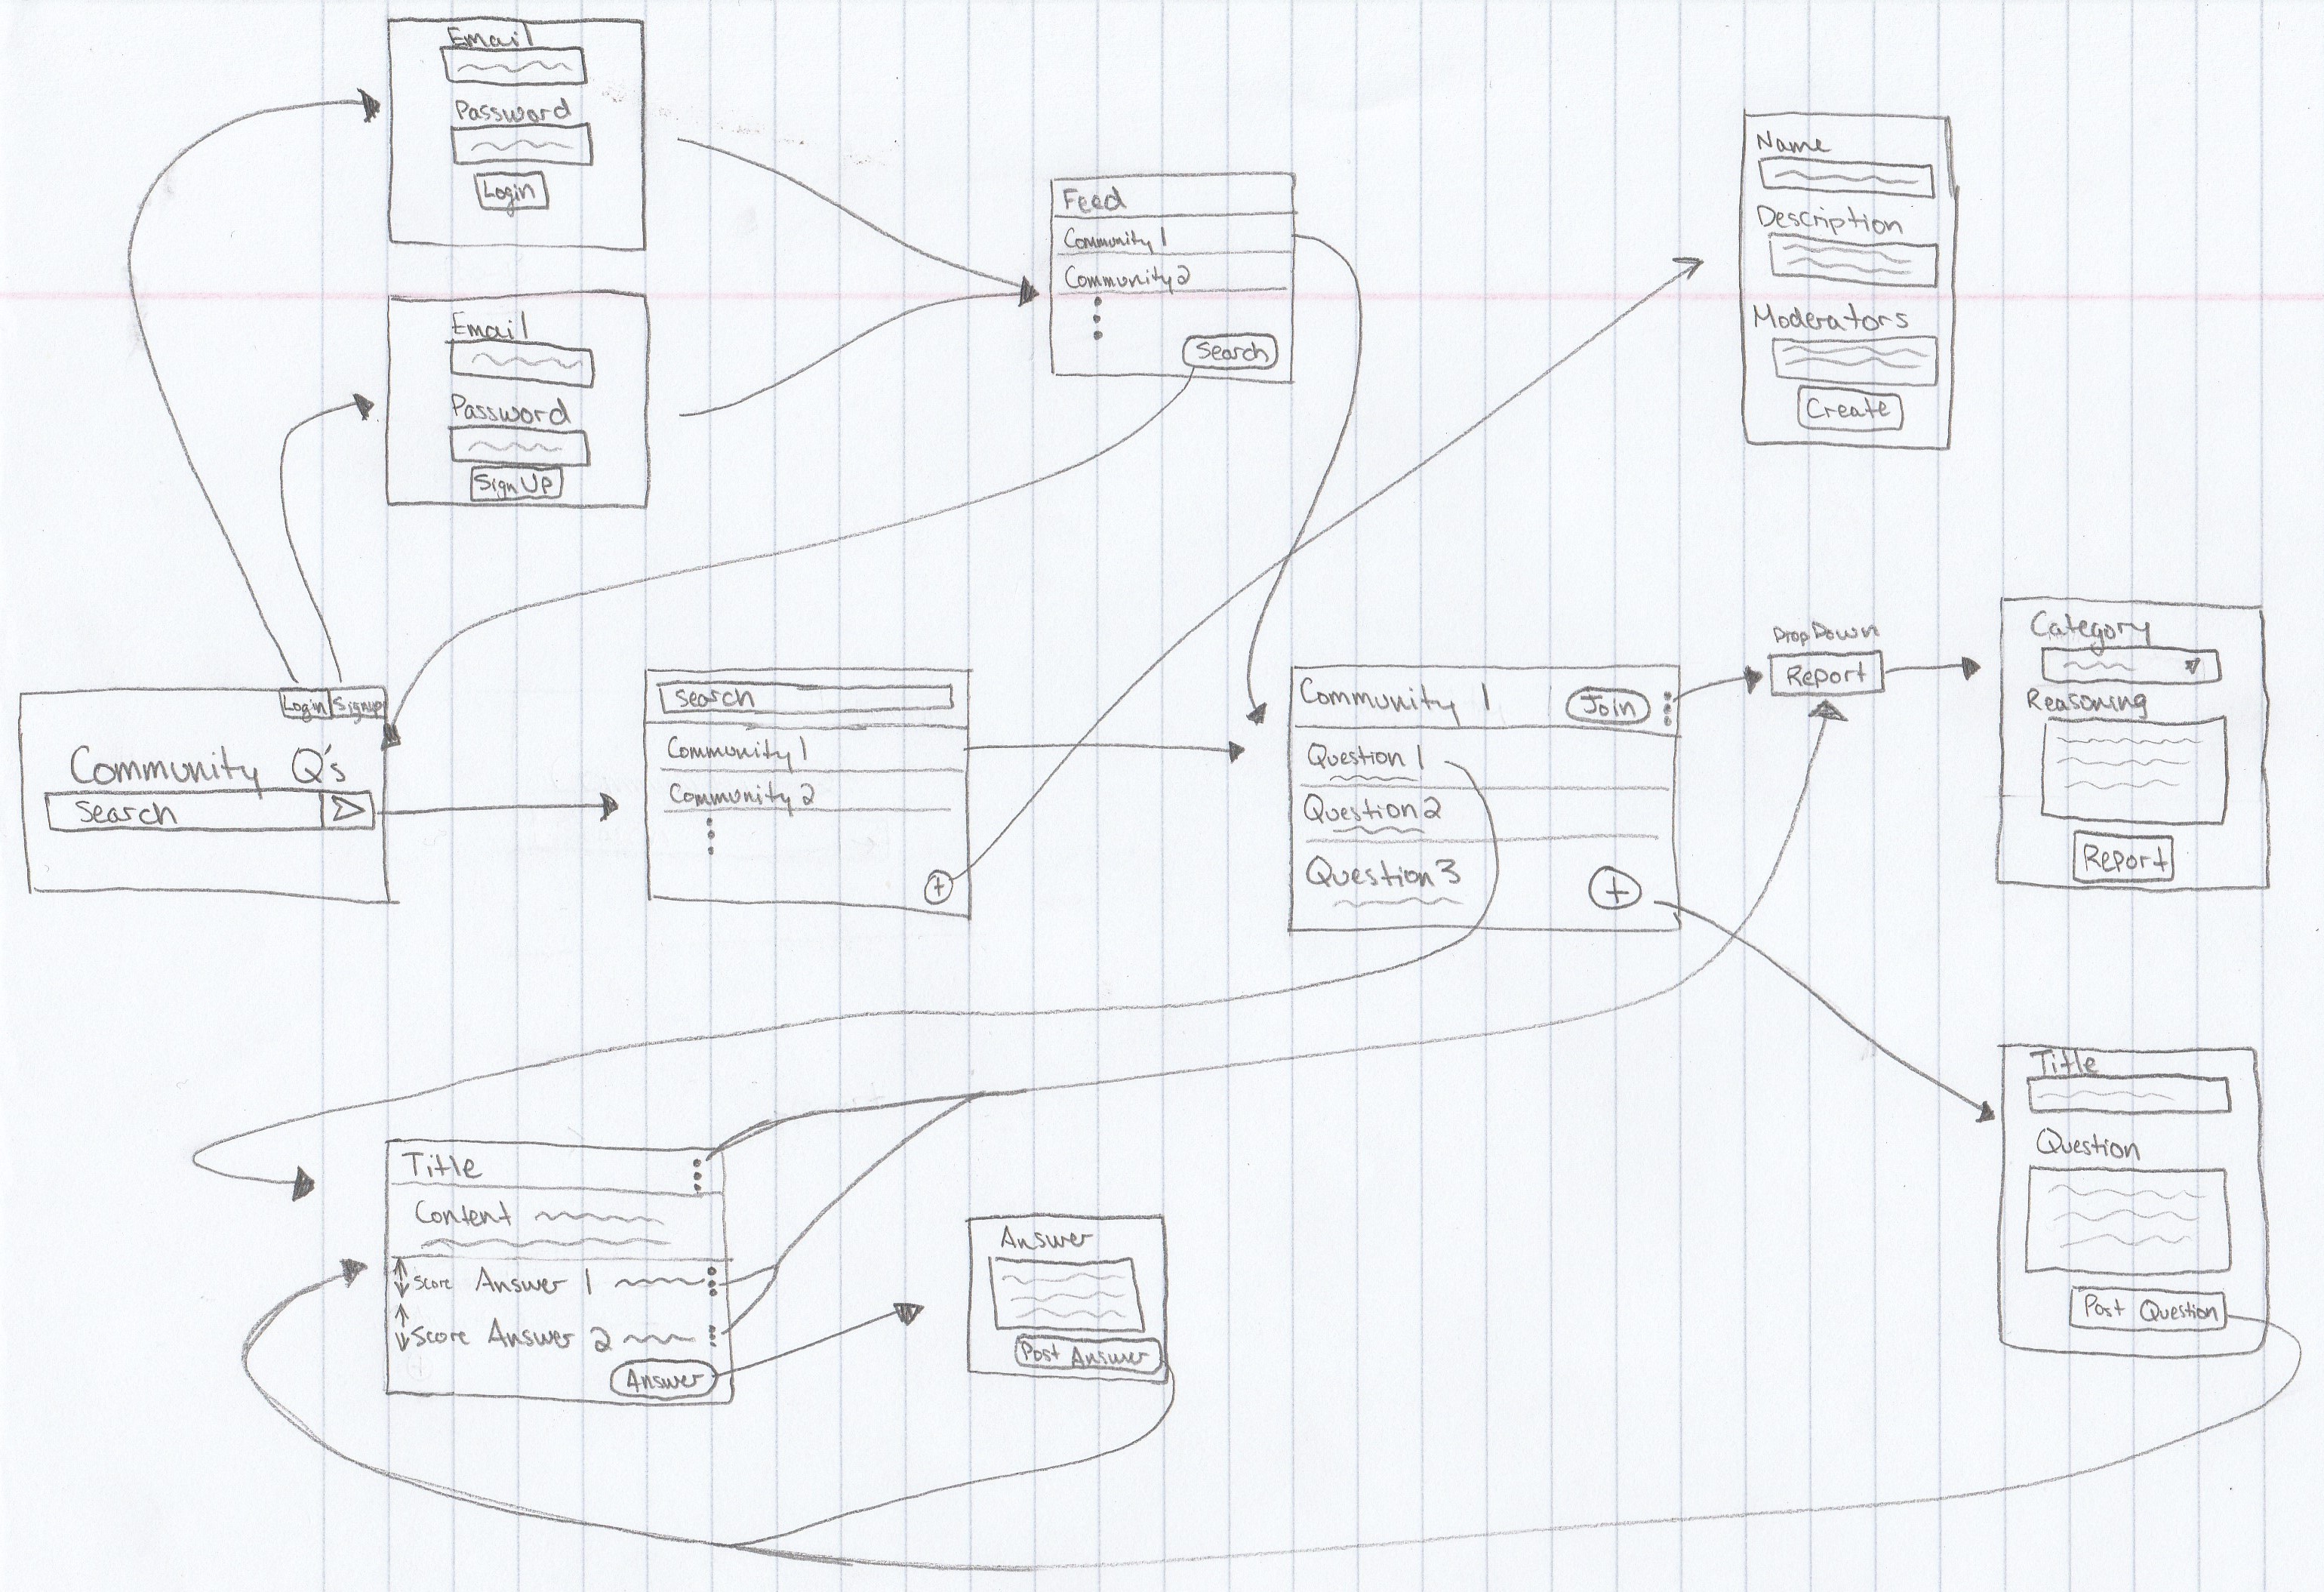 Email
Password
Login
Email
Password
SignUp
Feed
Community 1
Community 2
Search
Name
Description
Moderators
Create
Login Signup
Community Q's
Search
Search
Community 1
Community 2
+
Community 1 Join
Question 1
Question 2
Question 3
+
DropDown
Report
Category
Reasoning
Report
Title
Content
Score Answer 1
Score Answer 2
Answer
Answer
Post Answer
Title
Question
Post Question